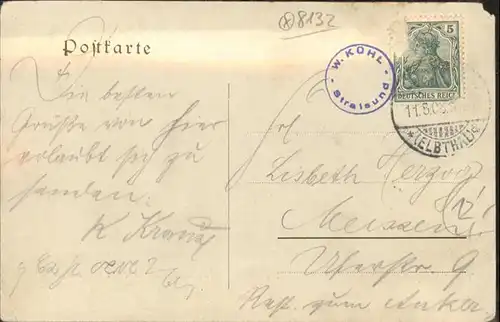 8132
Postkarte
W. KÖHL
Stralsund
5
DEUTSCHES REICH
11.5.0
(ELBTHAL)
Die besten
Grüße von hier
erlaubt sich zu
senden.
K
Frl
Lisbeth Herzog
Meissen
Uferstr. 9
Rest. zum Anker